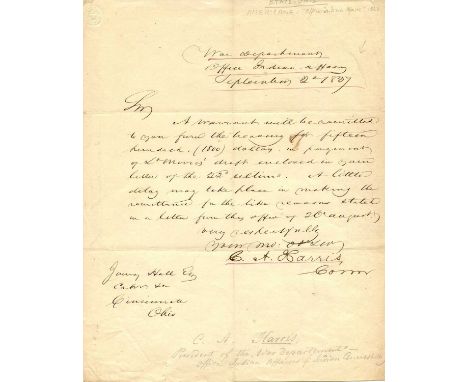 War Department
Office Indian Affairs
September 2d 1837
Sir
A warrant will be remitted
to you from the treasury for fifteen
hundred (1500) dollars, in payment
of Lt Morris' draft enclosed in your
letter of the 22d ultimo. A little
delay may take place in making the
remittance for the like reasons stated
in a letter from this office of 26 august,
very respectfully
Your mo. ob Ser
C. A. Harris,
Comr
James Hall Esq
Cincinnati
Ohio
C. A. Harris.
President of the War Department
Office Indian Affairs